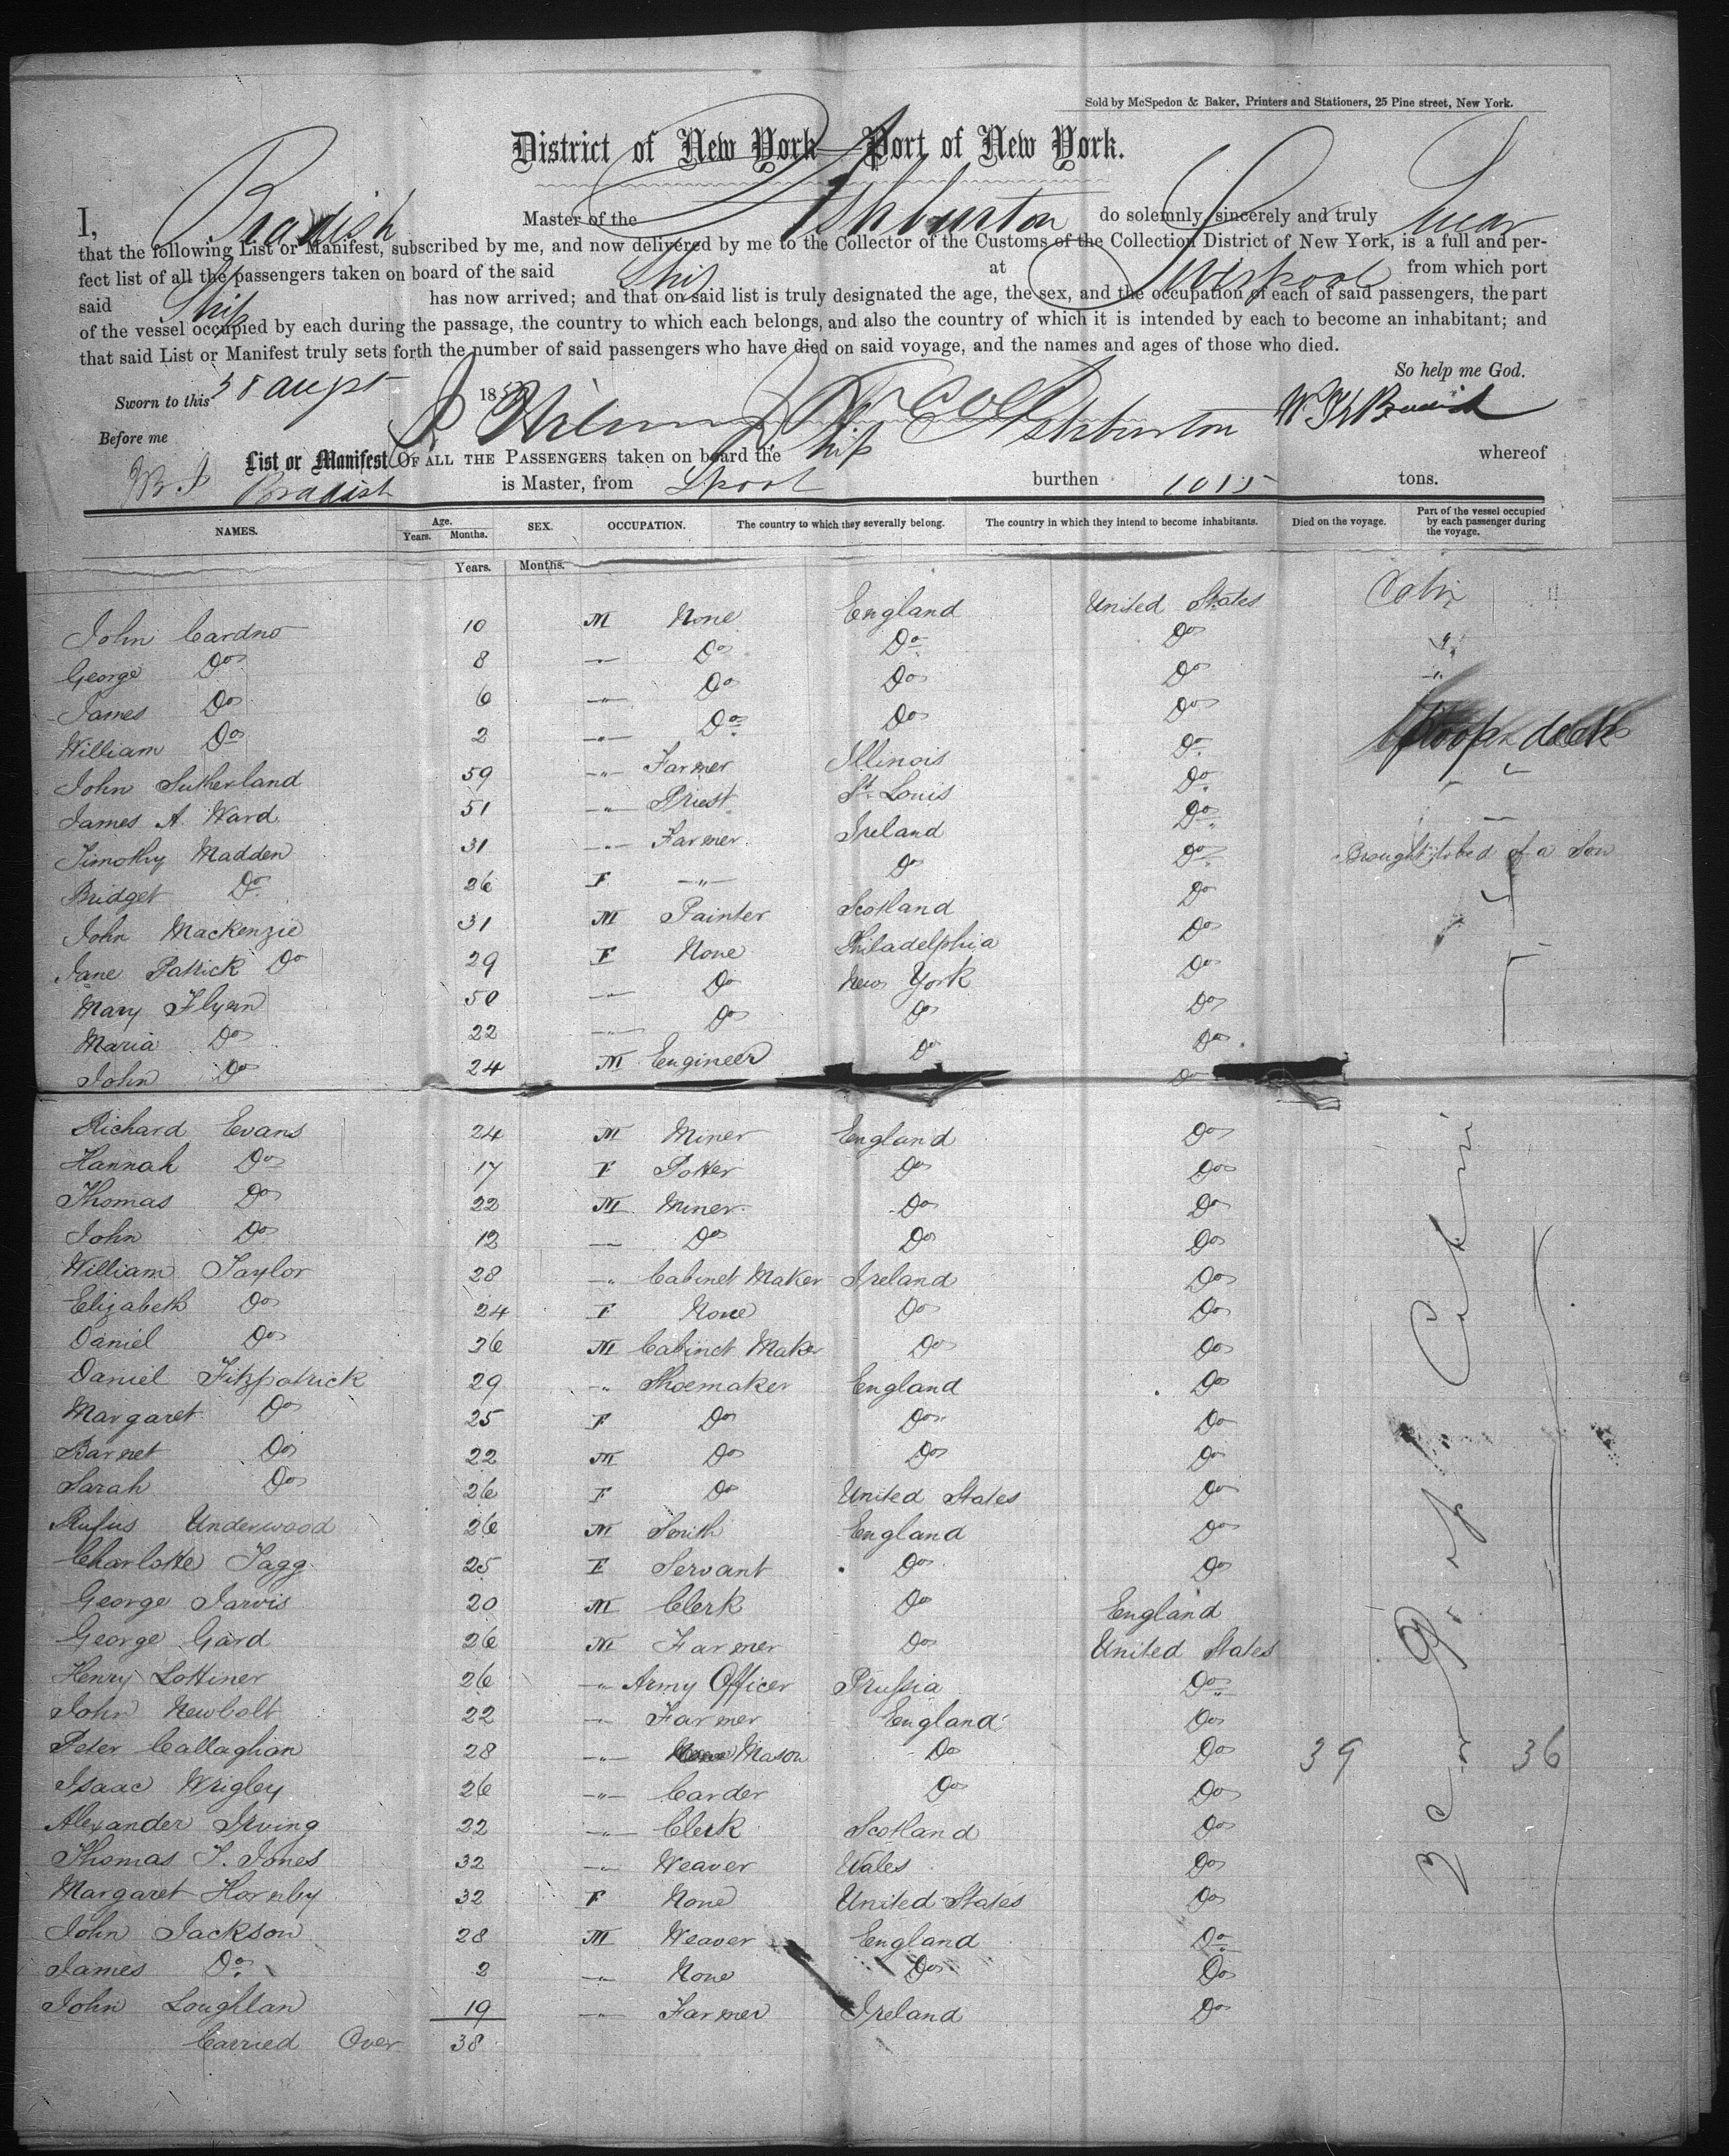 Sold by McSpedon & Baker, Printers and Stationers, 25 Pine street, New York.
District of New York—Port of New York.
I, Bradish Master of the Ashburton do solemnly, sincerely and truly swear
that the following List or Manifest, subscribed by me, and now delivered by me to the Collector of the Customs of the Collection District of New York, is a full and per-
fect list of all the passengers taken on board of the said Ship at Liverpool from which port
said Ship has now arrived; and that on said list is truly designated the age, the sex, and the occupation of each of said passengers, the part
of the vessel occupied by each during the passage, the country to which each belongs, and also the country of which it is intended by each to become an inhabitant; and
that said List or Manifest truly sets forth the number of said passengers who have died on said voyage, and the names and ages of those who died.
So help me God.
Sworn to this augst 185
Before me
List or Manifest OF ALL THE PASSENGERS taken on board the Ship Ashburton whereof
Bradish is Master, from Lpool burthen 1015 tons.
NAMES. Age. Years. Months. SEX. OCCUPATION. The country to which they severally belong. The country in which they intend to become inhabitants. Died on the voyage. Part of the vessel occupied by each passenger during the voyage.
Years. Months.
John Cardno 10 M None England United States Cabin
George Do 8 " Do Do Do "
James Do 6 " Do Do Do "
William Do 2 " Do Do Do
John Sutherland 59 " Farmer Illinois Do deck
James A. Ward 51 " Priest St Louis Do "
Timothy Madden 31 " Farmer Ireland Do
Bridget Do 26 F " Do Do Brought to bed of a Son
John Mackenzie 31 M Painter Scotland Do
Jane Pattick Do 29 F None Philadelphia Do
Mary Flynn 50 " Do New York Do
Maria Do 22 " Do Do Do
John Do 24 M Engineer Do Do
Do
Richard Evans 24 M Miner England Do
Hannah Do 17 F Potter Do Do
Thomas Do 22 M Miner Do Do
John Do 12 " Do Do Do
William Taylor 28 " Cabinet Maker Ireland Do
Elizabeth Do 24 F None Do Do
Daniel Do 26 M Cabinet Maker Do Do
Daniel Fitzpatrick 29 " Shoemaker England Do
Margaret Do 25 F Do Do Do
Barnet Do 22 M Do Do Do
Sarah Do 26 F Do United States Do
Rufus Underwood 26 M Smith England Do
Charlotte Tagg 25 F Servant Do Do
George Jarvis 20 M Clerk Do England
George Gard 26 M Farmer Do United States
Henry Lottiner 26 " Army Officer Prussia Do
John Newbolt 22 " Farmer England Do
Peter Callaghan 28 " Mason Do Do 39 36
Isaac Wrigley 26 " Carder Do Do
Alexander Irving 22 " Clerk Scotland Do
Thomas T. Jones 32 " Weaver Wales Do
Margaret Hornby 32 F None United States Do
John Jackson 28 M Weaver England Do
James Do 2 " None Do Do
John Loughlan 19 " Farmer Ireland Do
Carried Over 38